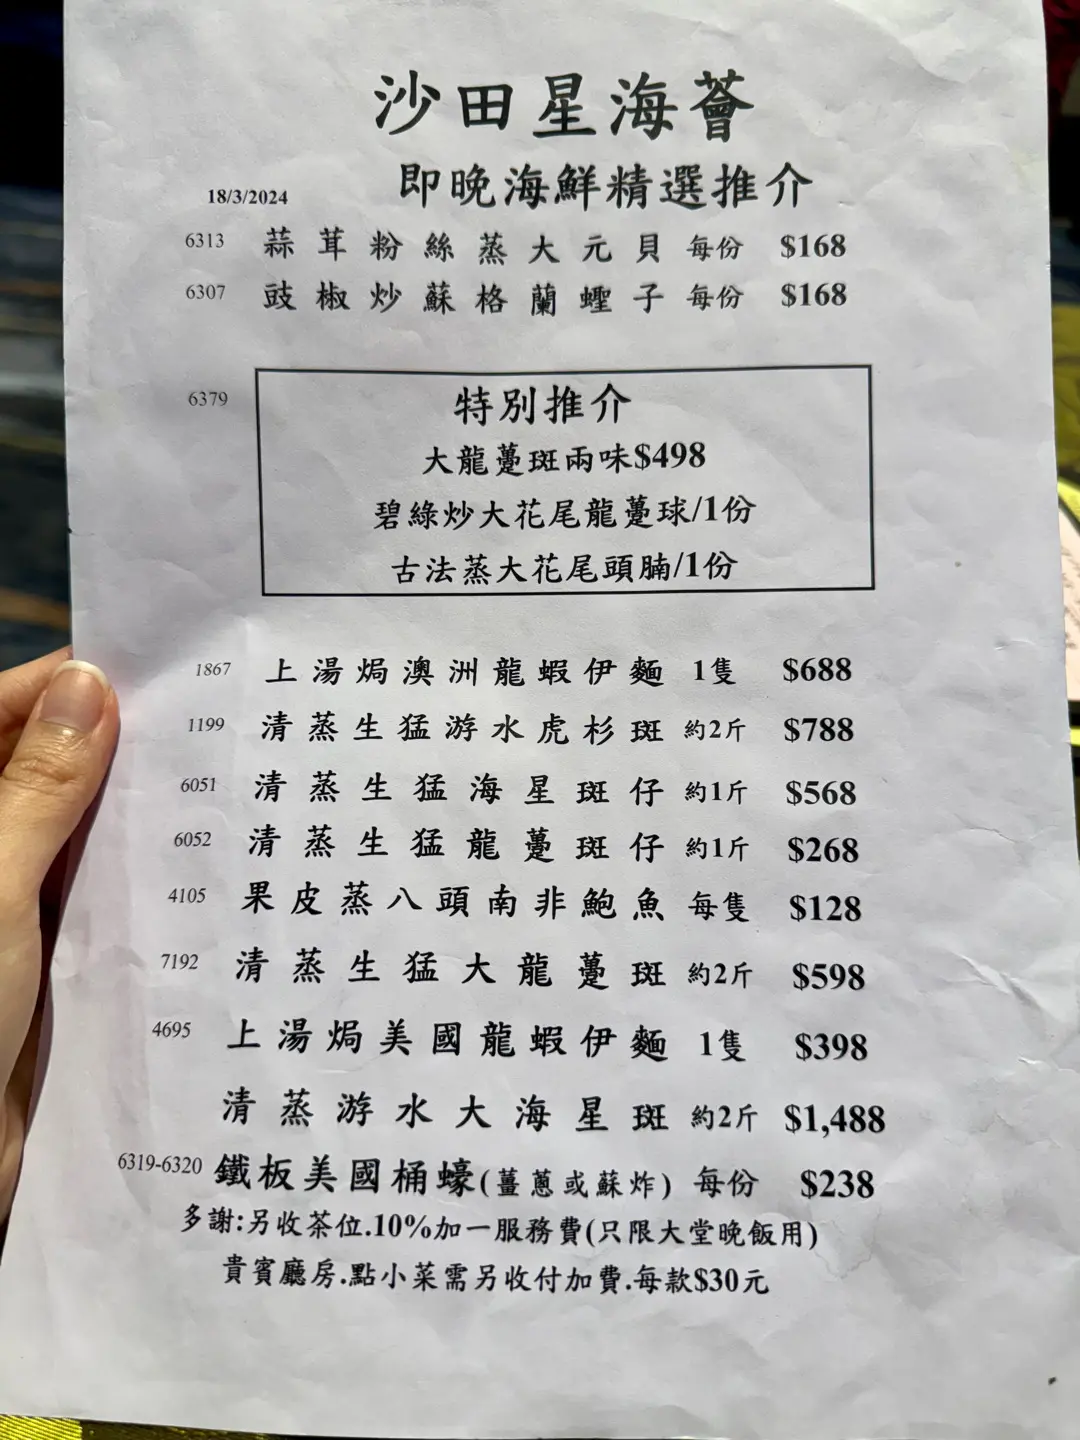 沙田星海薈
即晚海鮮精選推介
18/3/2024
6313 蒜茸粉絲蒸大元貝 每份 $168
6307 豉椒炒蘇格蘭蟶子 每份 $168
6379 特別推介
大龍躉斑兩味$498
碧綠炒大花尾龍躉球/1份
古法蒸大花尾頭腩/1份
1867 上湯焗澳洲龍蝦伊麵 1隻 $688
1199 清蒸生猛游水虎杉斑 約2斤 $788
6051 清蒸生猛海星斑仔 約1斤 $568
6052 清蒸生猛龍躉斑仔 約1斤 $268
4105 果皮蒸八頭南非鮑魚 每隻 $128
7192 清蒸生猛大龍躉斑 約2斤 $598
4695 上湯焗美國龍蝦伊麵 1隻 $398
清蒸游水大海星斑 約2斤 $1,488
6319-6320 鐵板美國桶蠔(薑蔥或蘇炸) 每份 $238
多謝:另收茶位.10%加一服務費(只限大堂晚飯用)
貴賓廳房.點小菜需另收付加費.每款$30元